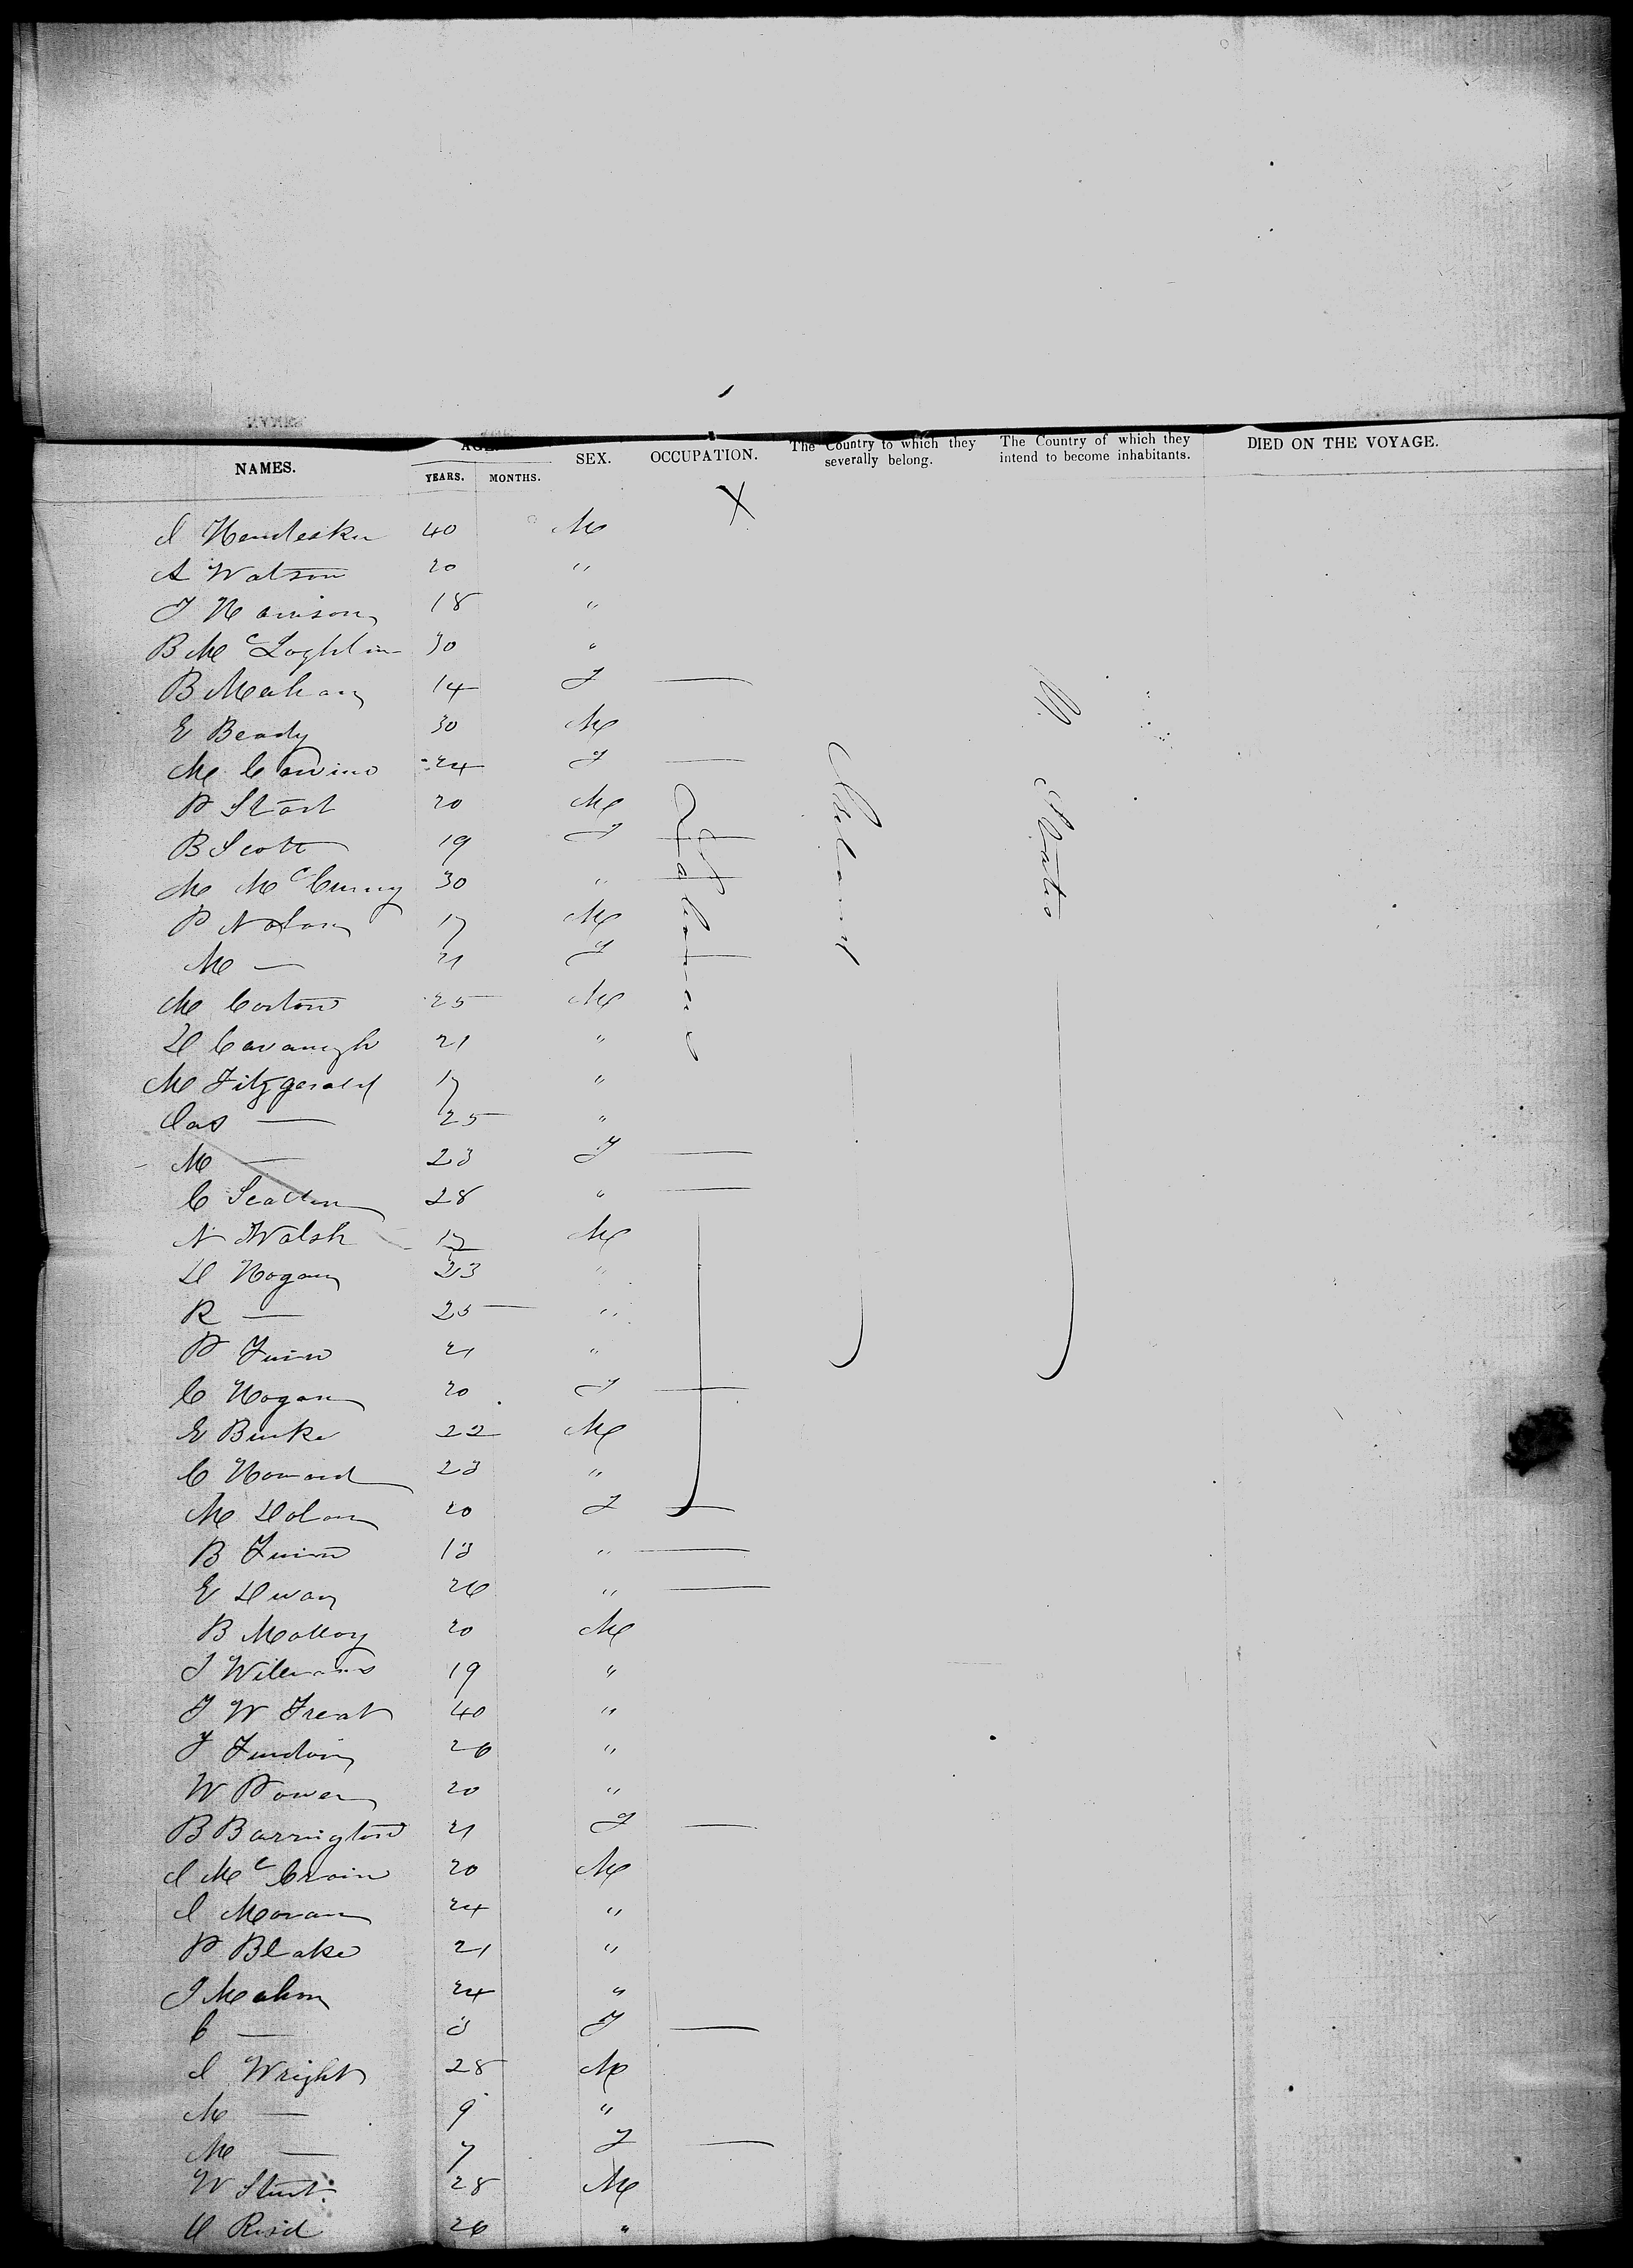 NAMES. AGE. YEARS. MONTHS. SEX. OCCUPATION. The Country to which they severally belong. The Country of which they intend to become inhabitants. DIED ON THE VOYAGE.
J 40 M
A Watson 20 "
J Harrison 18 "
B Mc Loghlin 30 "
B Mahan 14 F —
E Beady 30 M
M 24 F —
P Start 20 M
B Scott 19 F —
M Mc Curry 30 " —
P Nolan 17 M
M — 21 F —
M Corton 25 M
D Cavanagh 21 "
M Fitzgerald 17 "
Jas — 25 "
M — 23 F —
C Scallen 28 " —
N Walsh 17 M
D Hogan 23 "
R — 25 "
P Finn 21 "
C Hogan 20 F —
E Burke 22 M
C Howard 23 "
M Dolan 20 F —
B Finn 13 " —
E Dwan 26 " —
B Malloy 20 M
J Williams 19 "
J W Treat 40 "
J 26 "
W Power 20 "
B Barrington 21 F —
J Mc Crain 20 M
J Moran 24 "
P Blake 21 "
J Mahon 24 "
C — 3 F —
J Wright 28 M
M — 9 "
M — 7 F —
W 28 M
H Reid 26 "
Laborer
Ireland
U. States